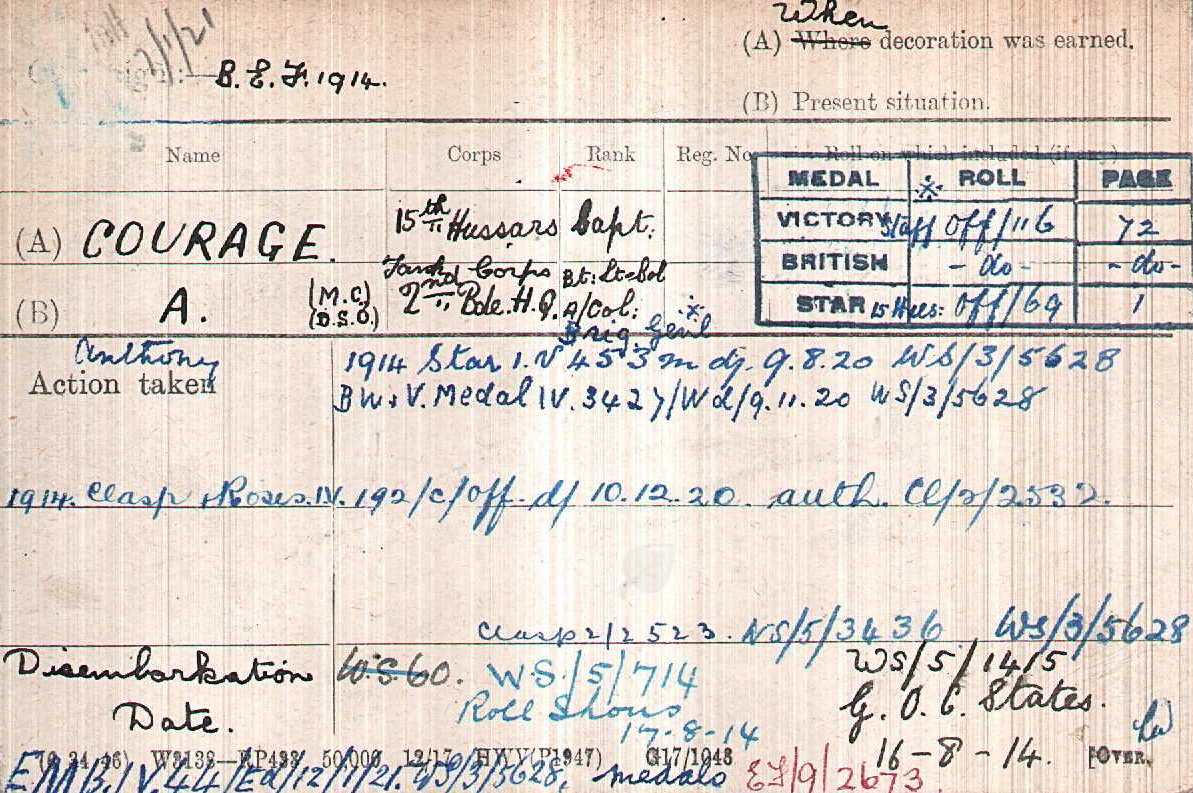 When
(A) Where decoration was earned.
2/1/21
B.E.F. 1914.
(B) Present situation.
Name Corps Rank Reg. No. Roll on which included (if any)
MEDAL ※ ROLL PAGE
(A) COURAGE. 15th Hussars Capt.
VICTORY Staff Off/116 72
Tank Corps Bt: Lt-Col
BRITISH -do- -do-
(B) A. (M.C.) (D.S.O.) 2nd Bde. H.Q. A/Col: ※
STAR 15 Hrs: Off/69 1
Brig. Genl
Anthony
Action taken
1914 Star I.V 453 m dj. 9.8.20 WS/3/5628
BW & V. Medal IV. 3427/Wd/9.11.20 WS/3/5628
1914. Clasp & Roses. IV. 192/c/off. d/ 10.12.20. auth. Cl/2/2532.
Clasp 2/2523. NS/5/3436 WS/3/5628
Disembarkation Date.
W.S.60. W.S./5/714 WS/5/1415
Roll Shows G.O.C. States.
17-8-14 16-8-14.
(6 34 46) W3138—RP433 50,000 12/17 HWV(P1947) G17/1043 [OVER.
EMB. IV. 44/Ed/12/1/21. WS/3/5628, medals EF/9/2673.